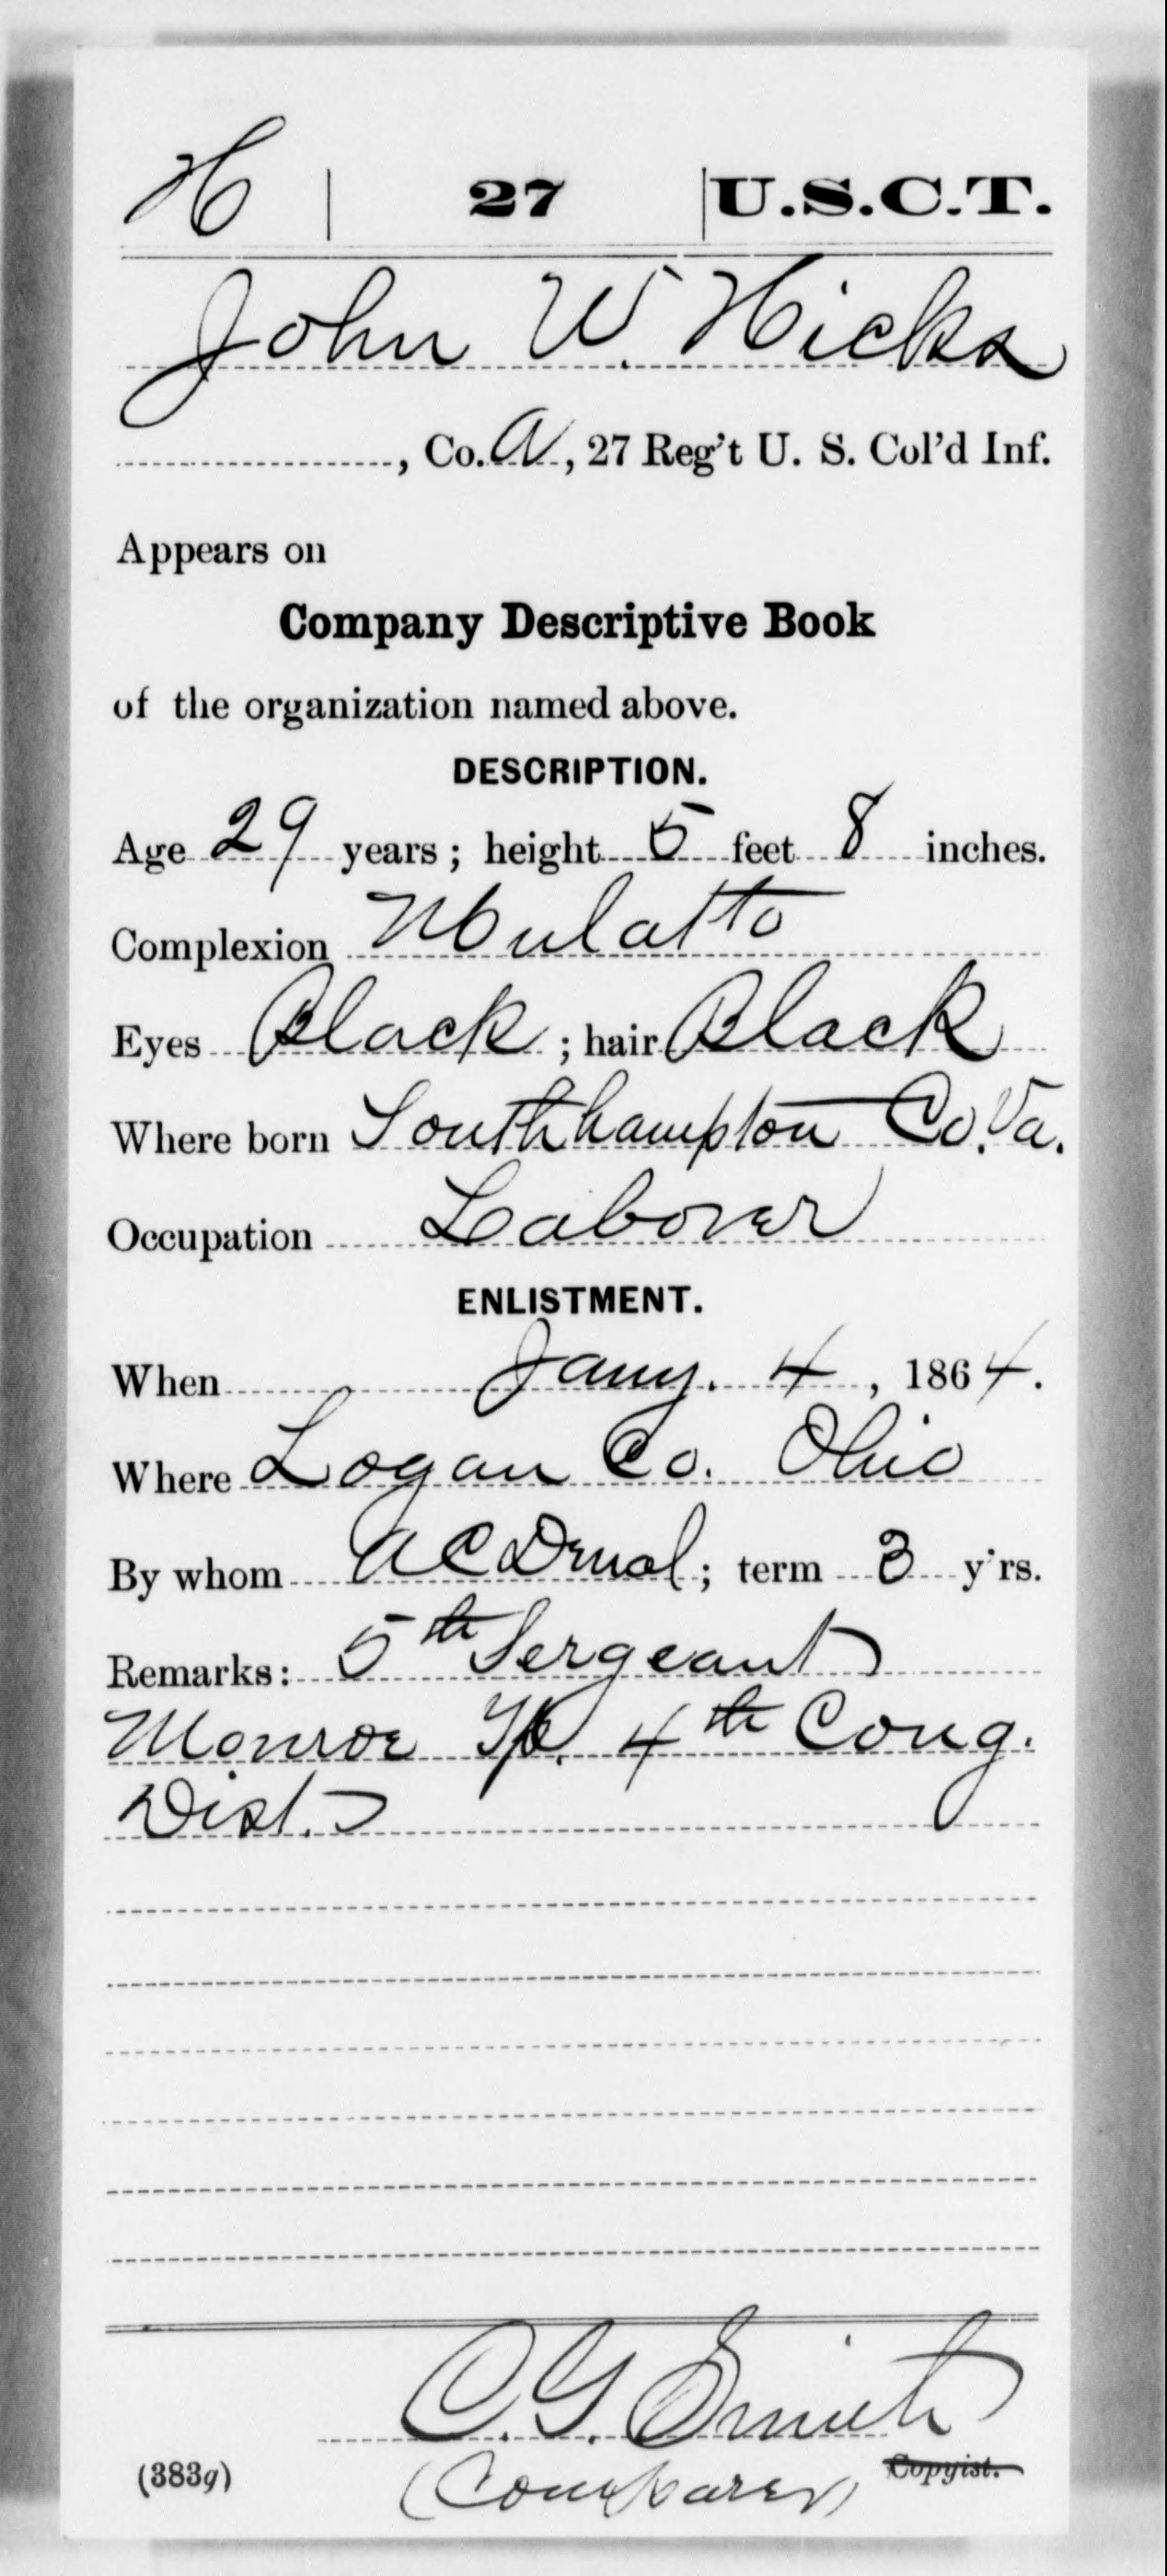 H | 27 | U.S.C.T.
John W. Hicks
, Co. A, 27 Reg't U. S. Col'd Inf.
Appears on
Company Descriptive Book
of the organization named above.
DESCRIPTION.
Age 29 years; height 5 feet 8 inches.
Complexion Mulatto
Eyes Black; hair Black
Where born Southhampton Co. Va.
Occupation Laborer
ENLISTMENT.
When Jany. 4, 1864.
Where Logan Co. Ohio
By whom A C Deual; term 3 y'rs.
Remarks: 5th Sergeant
Monroe Tp. 4th Cong.
Dist.
C. G. Smith
(383g) (Comparer) Copyist.